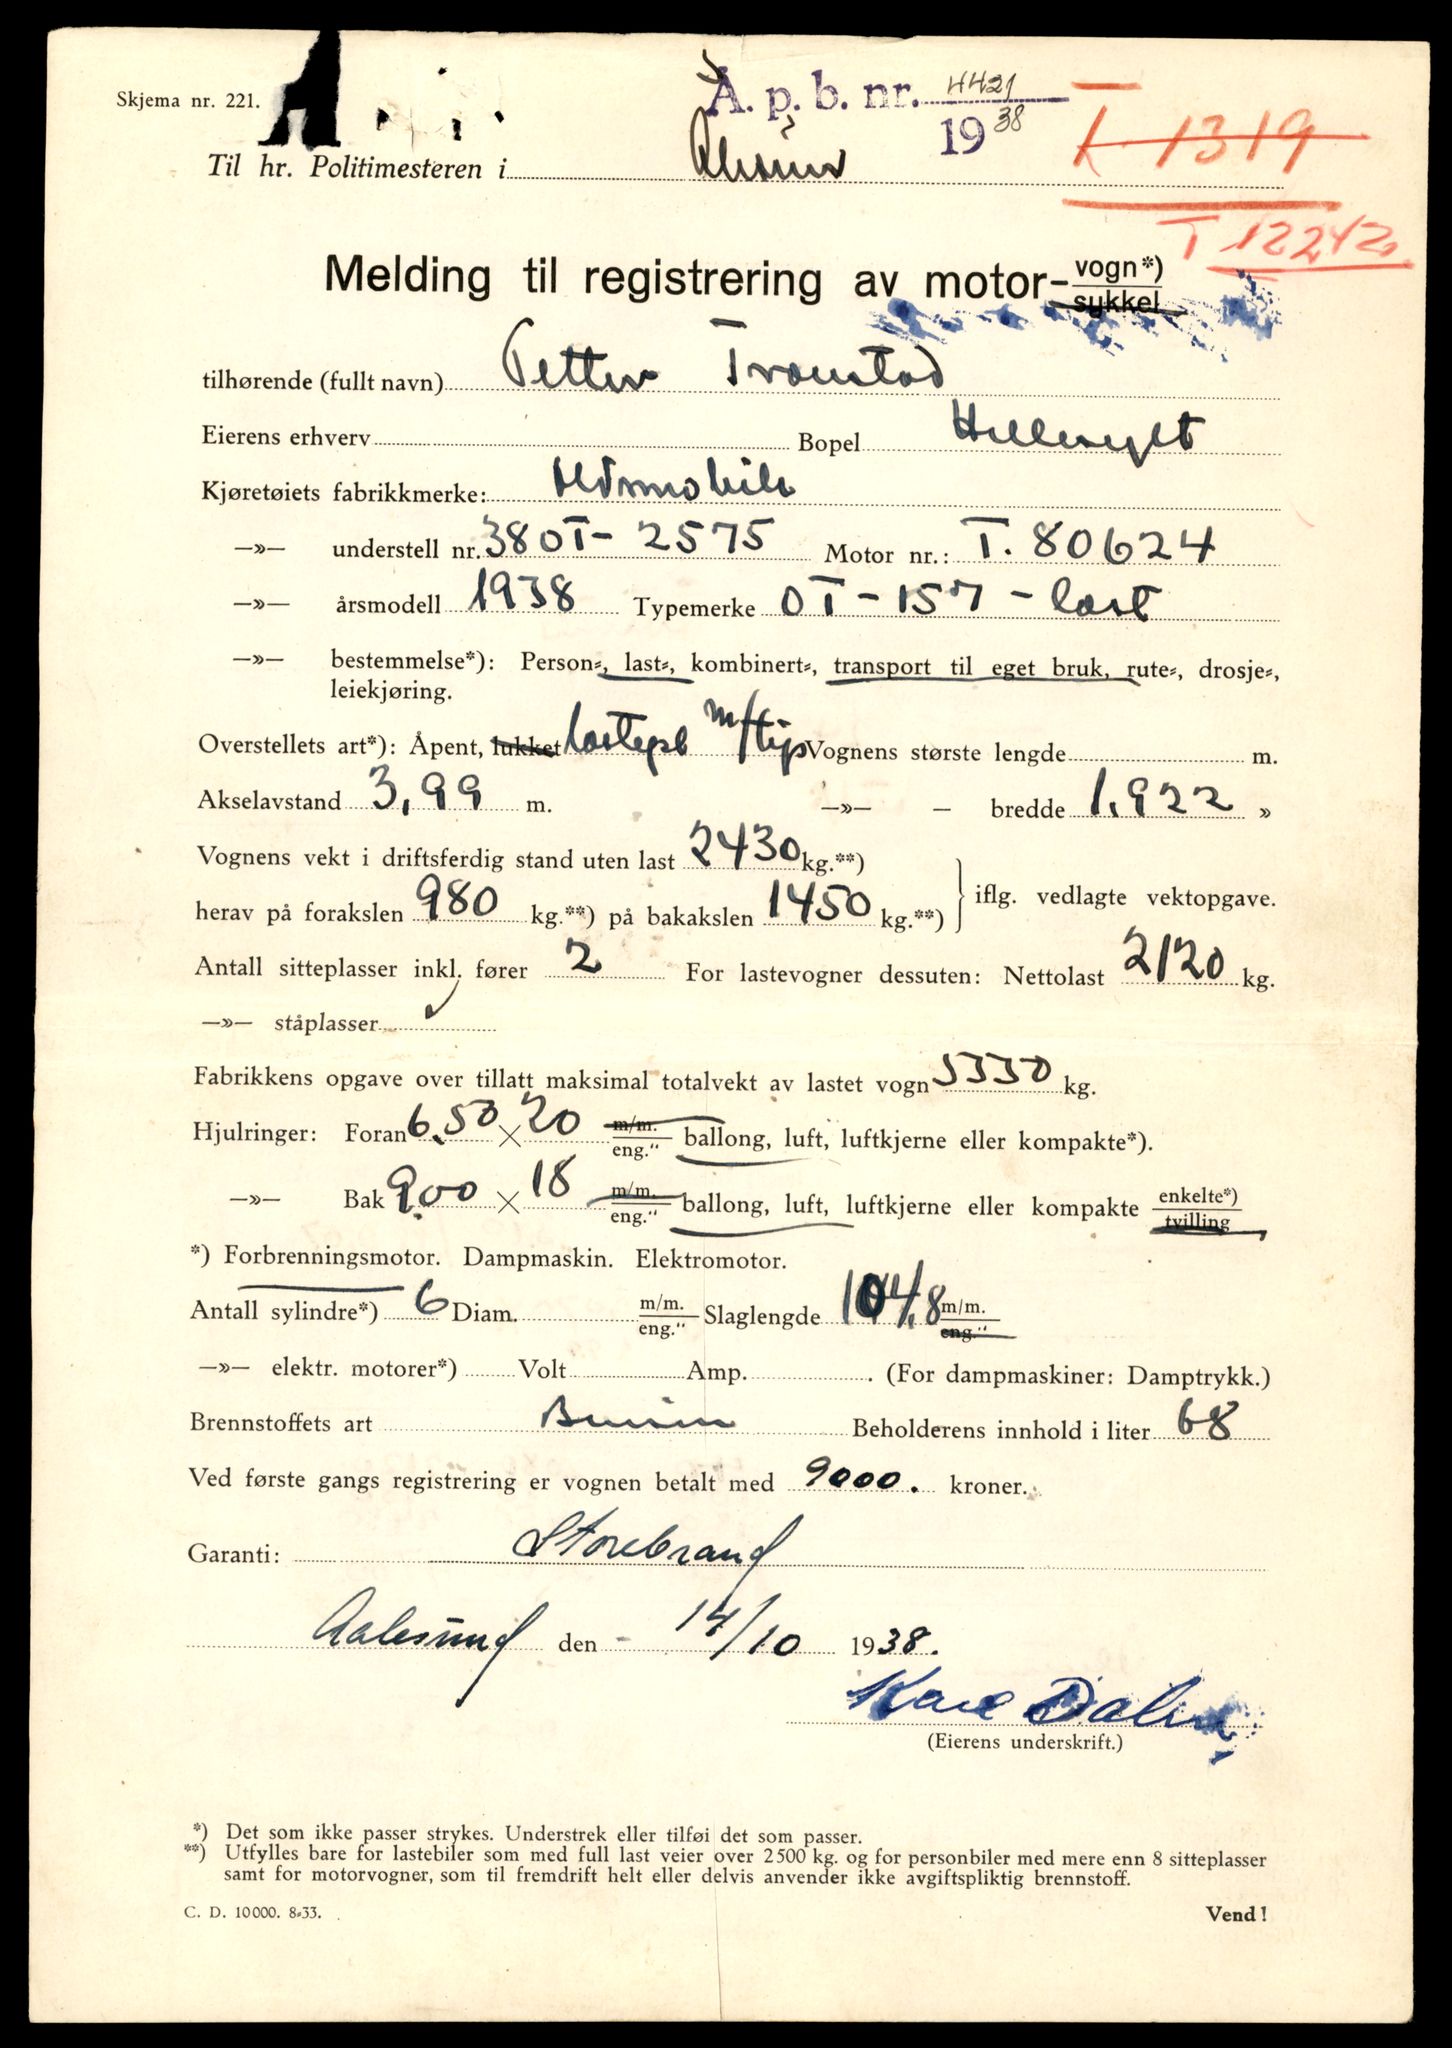 Skjema nr. 221.
Å. p. b. nr. 4421
1938
T 1319
Til hr. Politimesteren i
T 12242
Melding til registrering av motor-vogn*)
sykkel
tilhørende (fullt navn) Petter Tronstad
Eierens erhverv Bopel Hellesylt
Kjøretøiets fabrikkmerke: Oldsmobile
—»— understell nr. 380T-2575 Motor nr.: T. 80624
—»— årsmodell 1938 Typemerke OT-157-last
—»— bestemmelse*): Person-, last-, kombinert-, transport til eget bruk, rute-, drosje-,
leiekjøring.
Overstellets art*): Åpent, lukket lastepl m/tip Vognens største lengde m.
Akselavstand 3,99 m. —»— — bredde 1,922 »
Vognens vekt i driftsferdig stand uten last 2430 kg.**)
herav på forakslen 980 kg.**) på bakakslen 1450 kg.**) iflg. vedlagte vektopgave.
Antall sitteplasser inkl. fører 2 For lastevogner dessuten: Nettolast 2120 kg.
—»— ståplasser
Fabrikkens opgave over tillatt maksimal totalvekt av lastet vogn 5330 kg.
Hjulringer: Foran 6.50 × 20 m/m. eng." ballong, luft, luftkjerne eller kompakte*).
—»— Bak 9.00 × 18 m/m. eng." ballong, luft, luftkjerne eller kompakte enkelte*) tvilling
*) Forbrenningsmotor. Dampmaskin. Elektromotor.
Antall sylindre*) 6 Diam. m/m. eng." Slaglengde 104,8 m/m. eng."
—»— elektr. motorer*) Volt Amp. . (For dampmaskiner: Damptrykk.)
Brennstoffets art Bensin Beholderens innhold i liter 68
Ved første gangs registrering er vognen betalt med 9000. kroner.
Garanti: Storebrand
Aalesund den - 14/10 1938.
Kare Dahl
(Eierens underskrift.)
*) Det som ikke passer strykes. Understrek eller tilføi det som passer.
**) Utfylles bare for lastebiler som med full last veier over 2500 kg. og for personbiler med mere enn 8 sitteplasser
samt for motorvogner, som til fremdrift helt eller delvis anvender ikke avgiftspliktig brennstoff.
C. D. 10000. 8-33.
Vend!